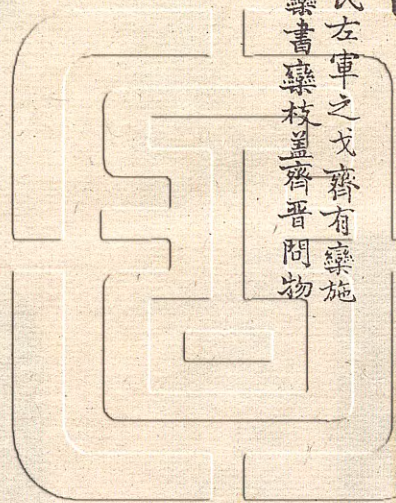 氏左軍之戈齊有欒施
欒書欒枝蓋齊晋間物